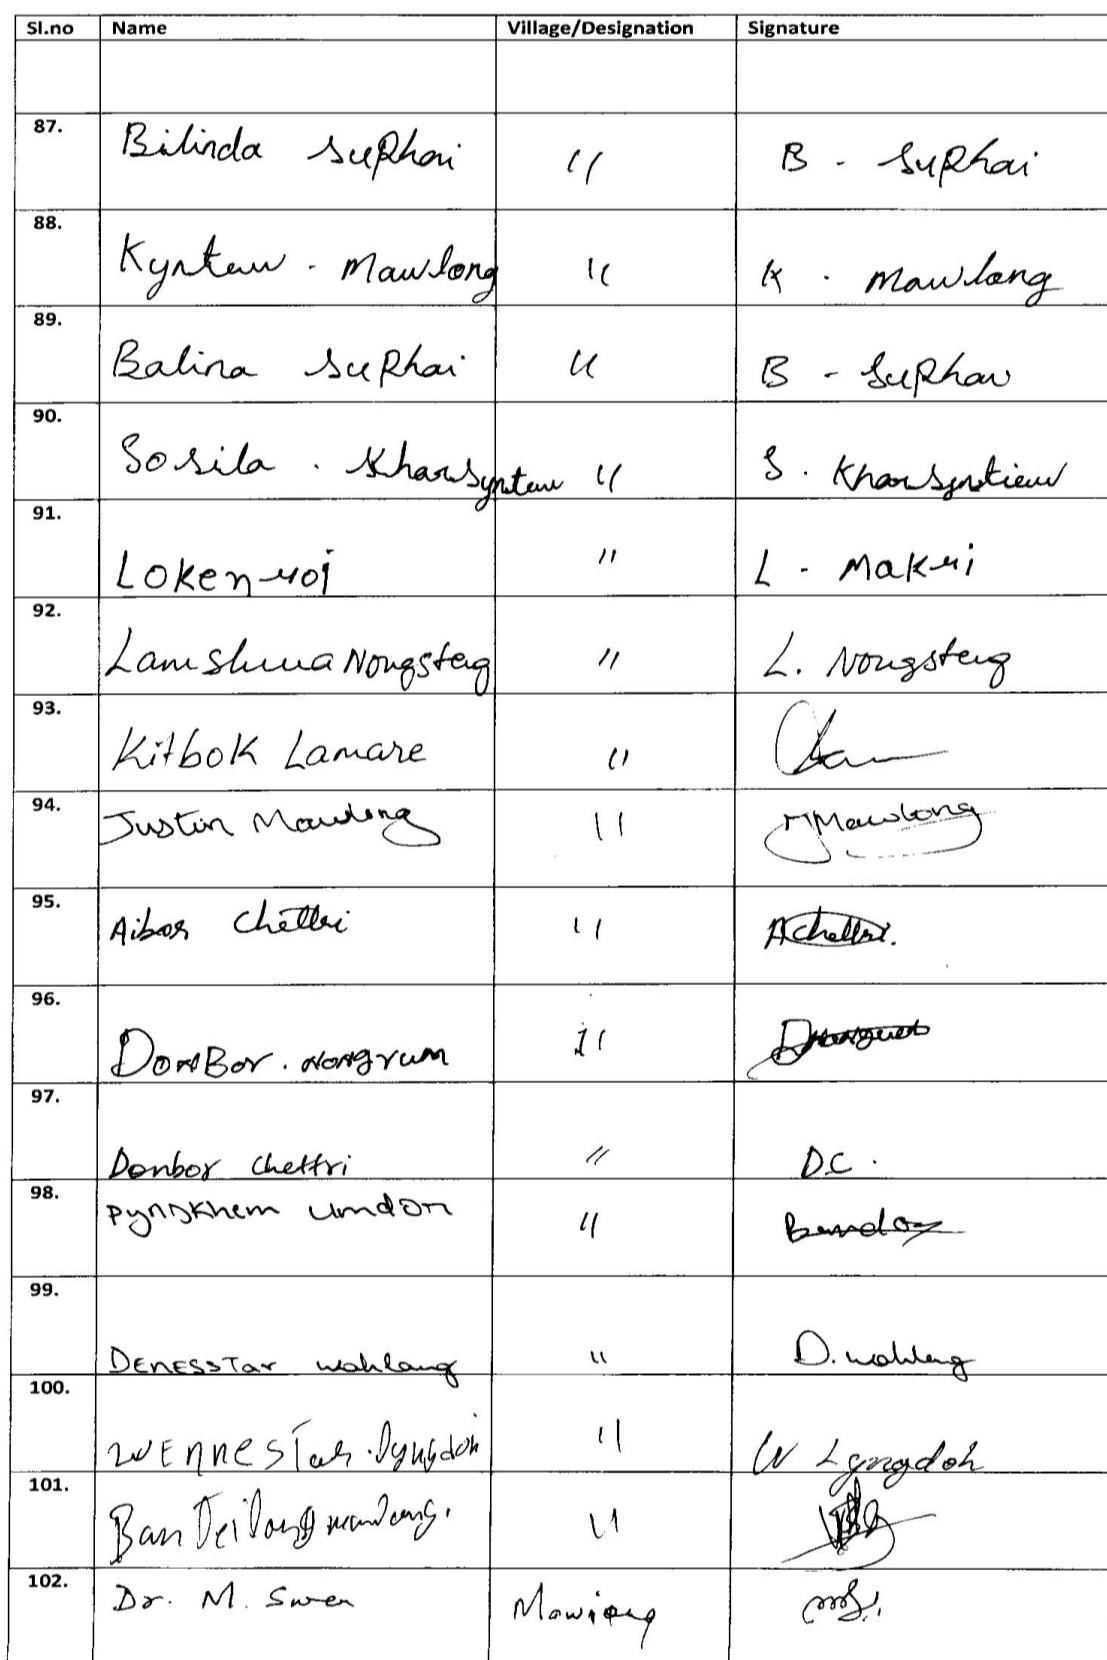 Sl.no Name Village/Designation Signature
87. Bilinda SuRhai " B - SuRhai
88. Kyntaw . Mawlong " K . Mawlong
89. Balina SuRhai " B - SuRhai
90. Sosila . Kharsyntew " S . Kharsyntiew
91. Loken roj " L - Makri
92. Lamshwa Nongsteng " L. Nongsteng
93. Kitbok Lamare "
94. Justin Mawlong " JMawlong
95. Aibor Chettri " AChettri.
96. DonBor . Nongrum "
97. Donbor Chettri " D.C.
98. Pynskhem Umdor "
99. DENESSTar Wahlang " D. Wahlang
100. WENNESTar . Lyngdoh " W Lyngdoh
101. "
102. Dr. M. Swer Mawiong